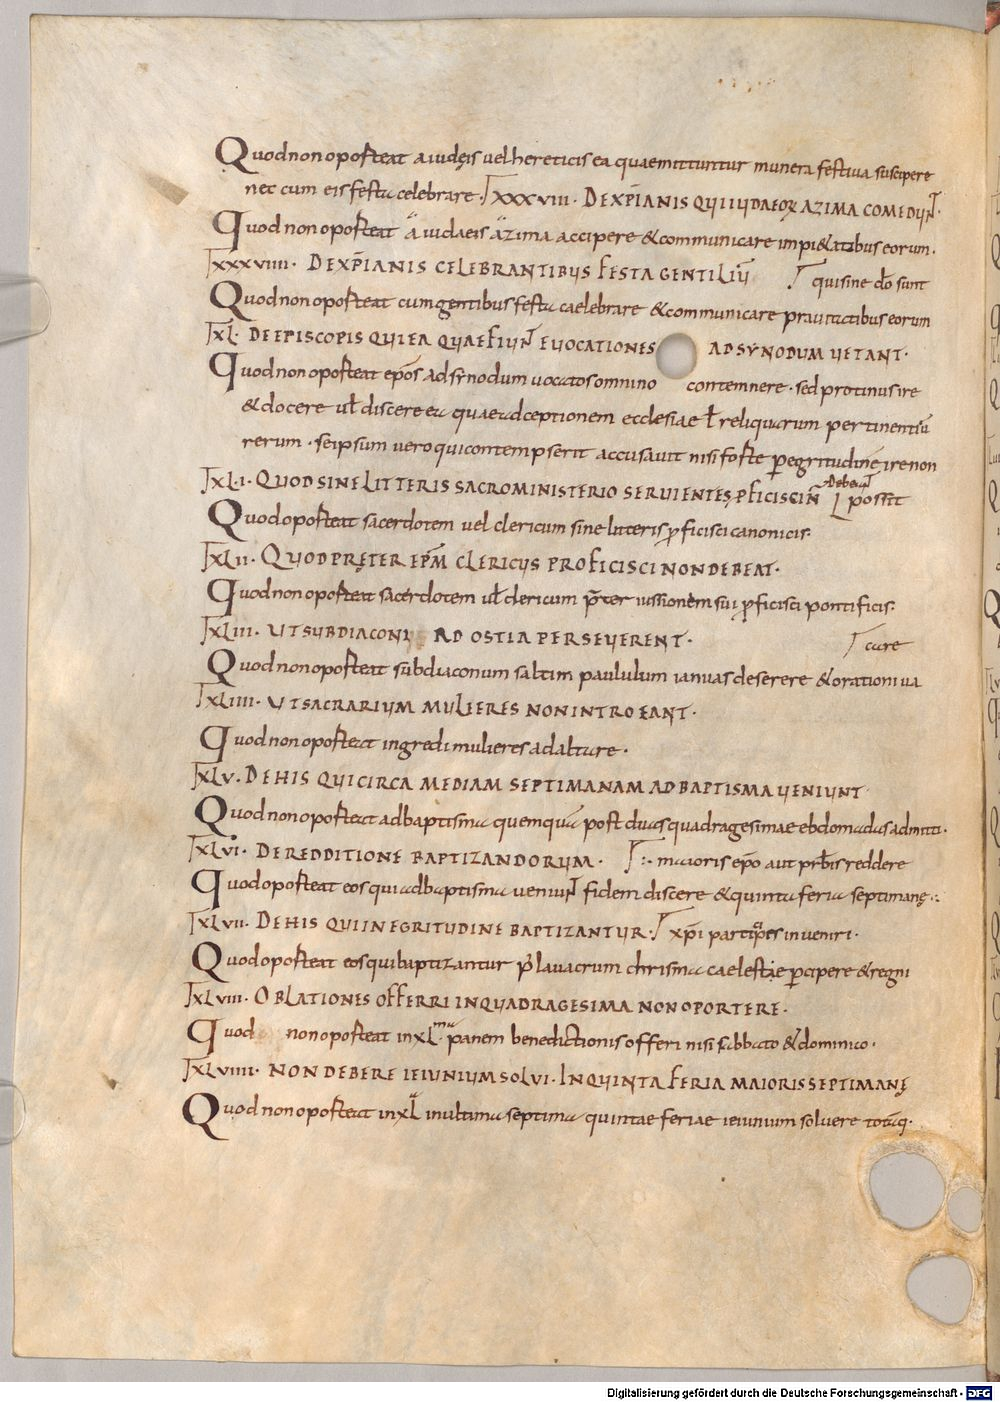 Quod non oporteat a iudęis uel hereticis ea quae mittuntur munera festiua suscipere
nec cum eis festa celebrare. XXXVIII. DE XP̄IANIS QUI IUDAEOꝜ AZIMA COMEDUNT.
Quod non oporteat a iudaeis azima accipere & communicare impi&atibus eorum.
XXXVIIII. DE XP̄IANIS CELEBRANTIBUS FESTA GENTILIŪ qui sine dō sunt
Quod non oporteat cum gentibus festa caelebrare & communicare prauitatibus eorum
XL. DE EPISCOPIS QUI EA QUAE FIUNT EUOCATIONES AD SYNODUM UETANT.
Quod non oporteat ep̄os ad synodum uocatos omnino contemnere. sed protinus ire
& docere ul̄ discere ea quae ad ceptionem ecclesiae ł reliquarum pertinentiū
rerum. seipsum uero qui contempserit accusauit nisi forte p̱ egritudinē ire non
XLI. QUOD SINE LITTERIS SACRO MINISTERIO SERUIENTES PFICISCI N̄ debent possit
Quod oporteat sacerdotem uel clericum sine litteris ꝓficisci canonicis.
XLII. QUOD PRĘTER EP̄M CLERICUS PROFICISCI NON DEBEAT.
Quod non oporteat sacerdotem ul̄ clericum p̄ter iussionem sui ꝓficisci pontificis.
XLIII. UT SUBDIACONI AD OSTIA PERSEUERENT. care
Quod non oporteat subdiaconum saltim paululum ianuas deserere & orationi ua
XLIIII. UT SACRARIUM MULIERES NON INTROEANT.
Quod non oporteat ingredi mulieres ad altare.
XLV. DE HIS QUI CIRCA MEDIAM SEPTIMANAM AD BAPTISMA UENIUNT
Quod non oporteat ad baptisma quemquā post duas quadragesimae ebdomadas admitti.
XLVI. DE REDDITIONE BAPTIZANDORUM. maioris ep̄o aut prb̄is reddere
Quod oporteat eos qui ad baptisma ueniunt fidem discere & quinta feria septimanę
XLVII. DE HIS QUI IN EGRITUDINE BAPTIZANTUR. xp̄i participes inueniri.
Quod oporteat eos qui baptizantur p̄ lauacrum chrisma caeleste p̱cipere & regni
XLVIII. OBLATIONES OFFERRI IN QUADRAGESIMA NON OPORTERE.
Quod non oporteat in XLma panem benedictionis offeri nisi sabbato & dominico.
XLVIIII. NON DEBERE IEIUNIUM SOLVI. IN QUINTA FERIA MAIORIS SEPTIMANĘ
Quod non oporteat in XL in ultima septima quintae feriae ieiunium soluere
Digitalisierung gefördert durch die Deutsche Forschungsgemeinschaft - DFG